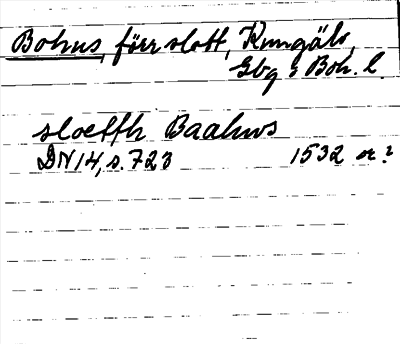 Bohus, förr slott, Kungälv,
Gbg o Boh. l.
sloetth Baahws
DN 14, s. 723 1532 or?